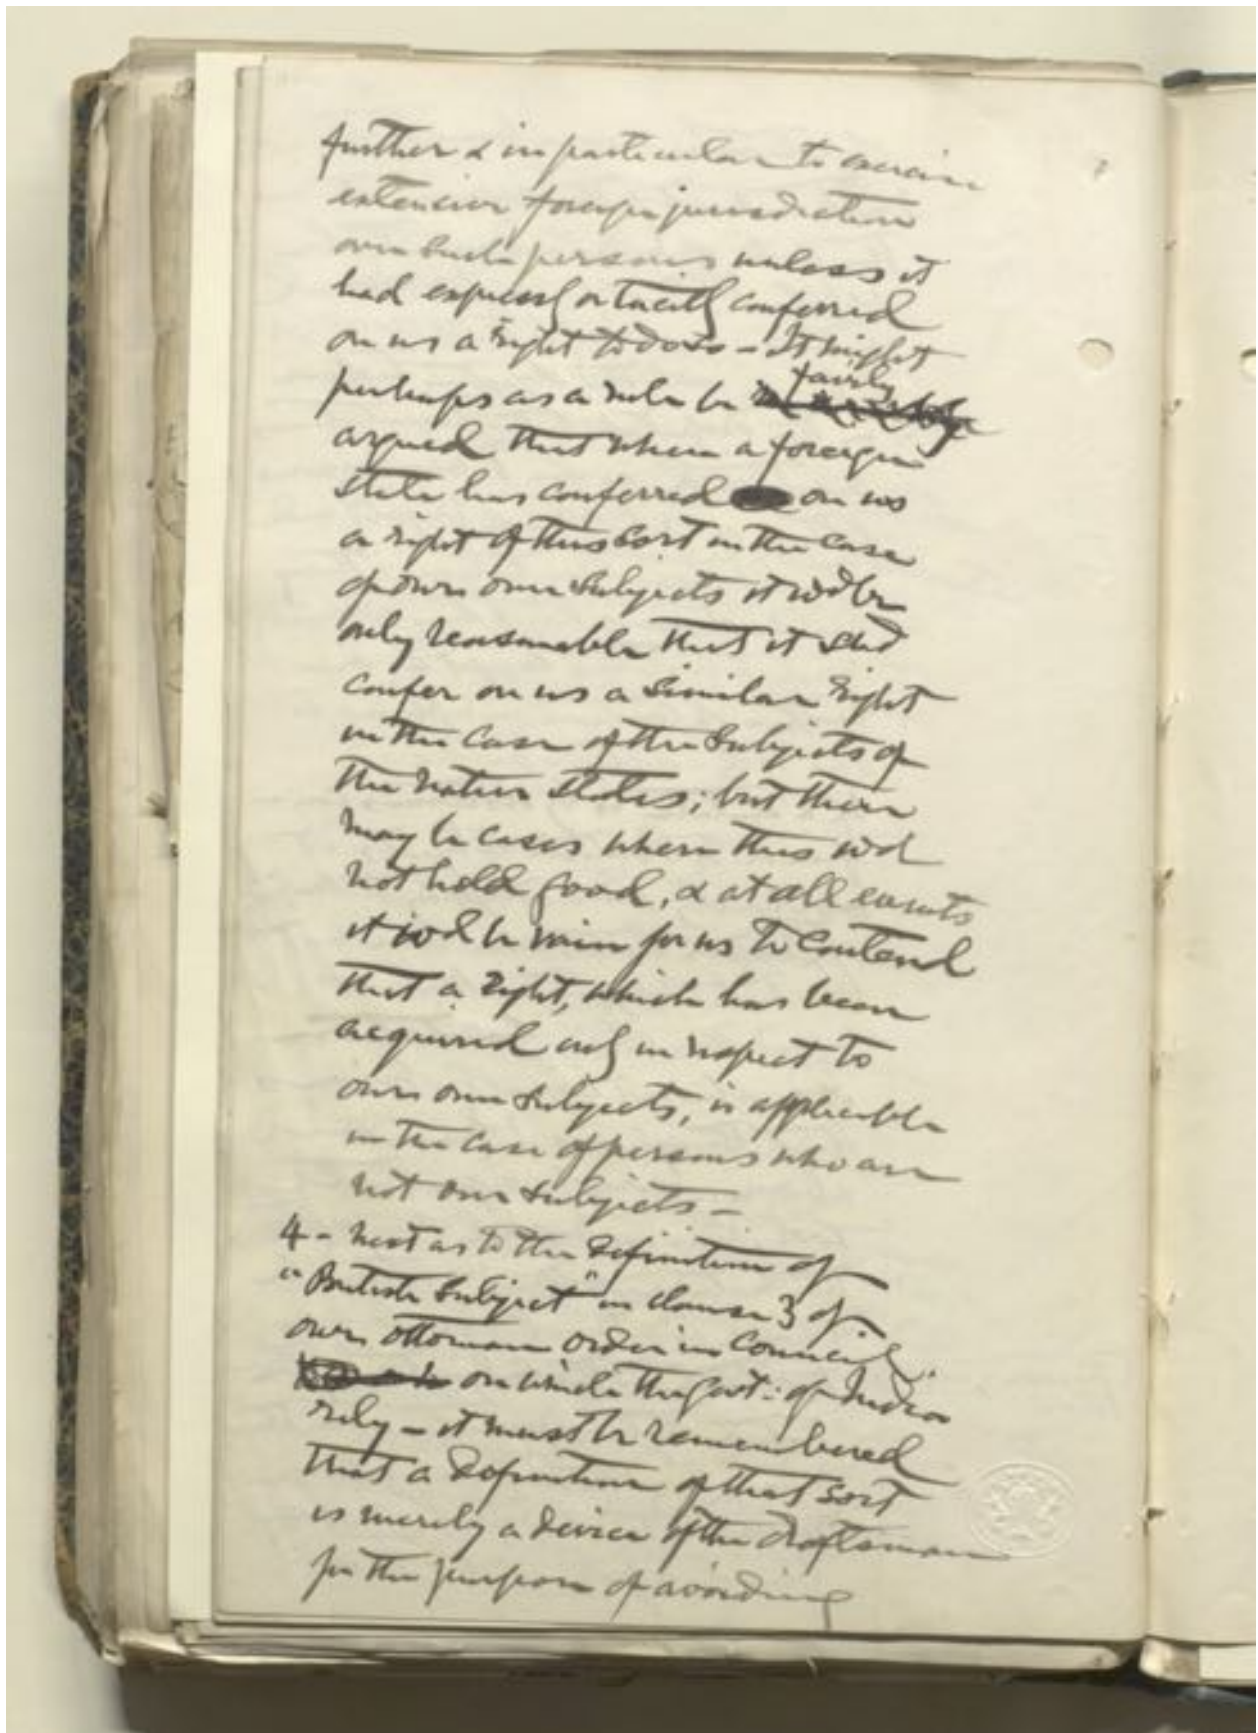 further & in particular to exercise
extensive foreign jurisdiction
over such persons unless it
had expressly or tacitly conferred
on us a right to do so – It might
fairly
perhaps as a rule be
argued that when a foreign
state has conferred on us
a right of this sort in the case
of our own subjects it wd be
only reasonable that it shd
confer on us a similar right
in the case of the subjects of
the native states; but there
may be cases where this wd
not hold good, & at all events
it wd be vain for us to contend
that a right, which has been
acquired only in respect to
our own subjects, is applicable
in the case of persons who are
not our subjects –
4 – Next as to the definition of
"British Subject" in clause 3 of
our Ottoman order in Council,
on which the Govt: of India
rely – it must be remembered
that a definition of that sort
is merely a device of the draftsman
for the purpose of avoiding